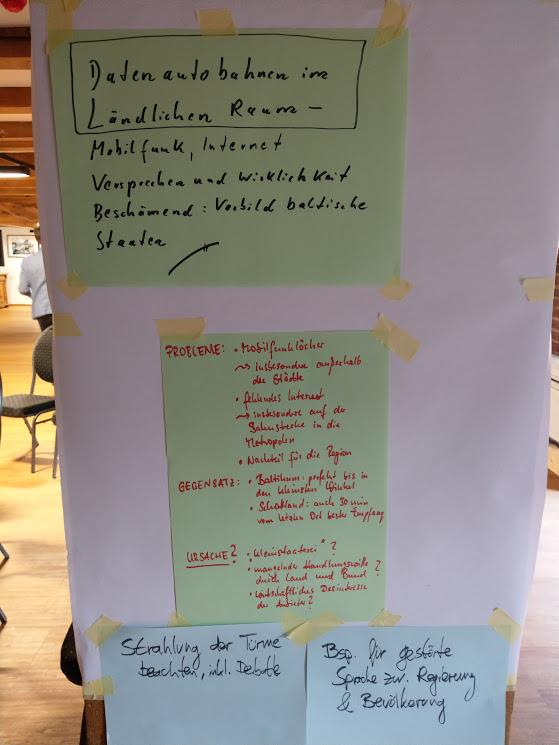 Datenautobahnen im
Ländlichen Raum –
Mobilfunk, Internet
Versprechen und Wirklichkeit
Beschämend: Vorbild baltische
Staaten
PROBLEME: • Mobilfunklöcher
↝ insbesondere außerhalb
der Städte
• fehlendes Internet
↝ insbesondere auf der
Bahnstrecke in die
Metropolen
• Nachteil für die Region
GEGENSATZ: • Baltikum: perfekt bis in
den kleinsten Winkel
• Schottland: auch 30 min
vom letzten Ort bester Empfang
URSACHE? • "Kleinstaaterei"?
• mangelnder Handlungswille
durch Land und Bund?
• wirtschaftliches Desinteresse
der Anbieter?
Strahlung der Türme
beachten, inkl. Debatte
Bsp. für gestörte
Sprache zw. Regierung
& Bevölkerung